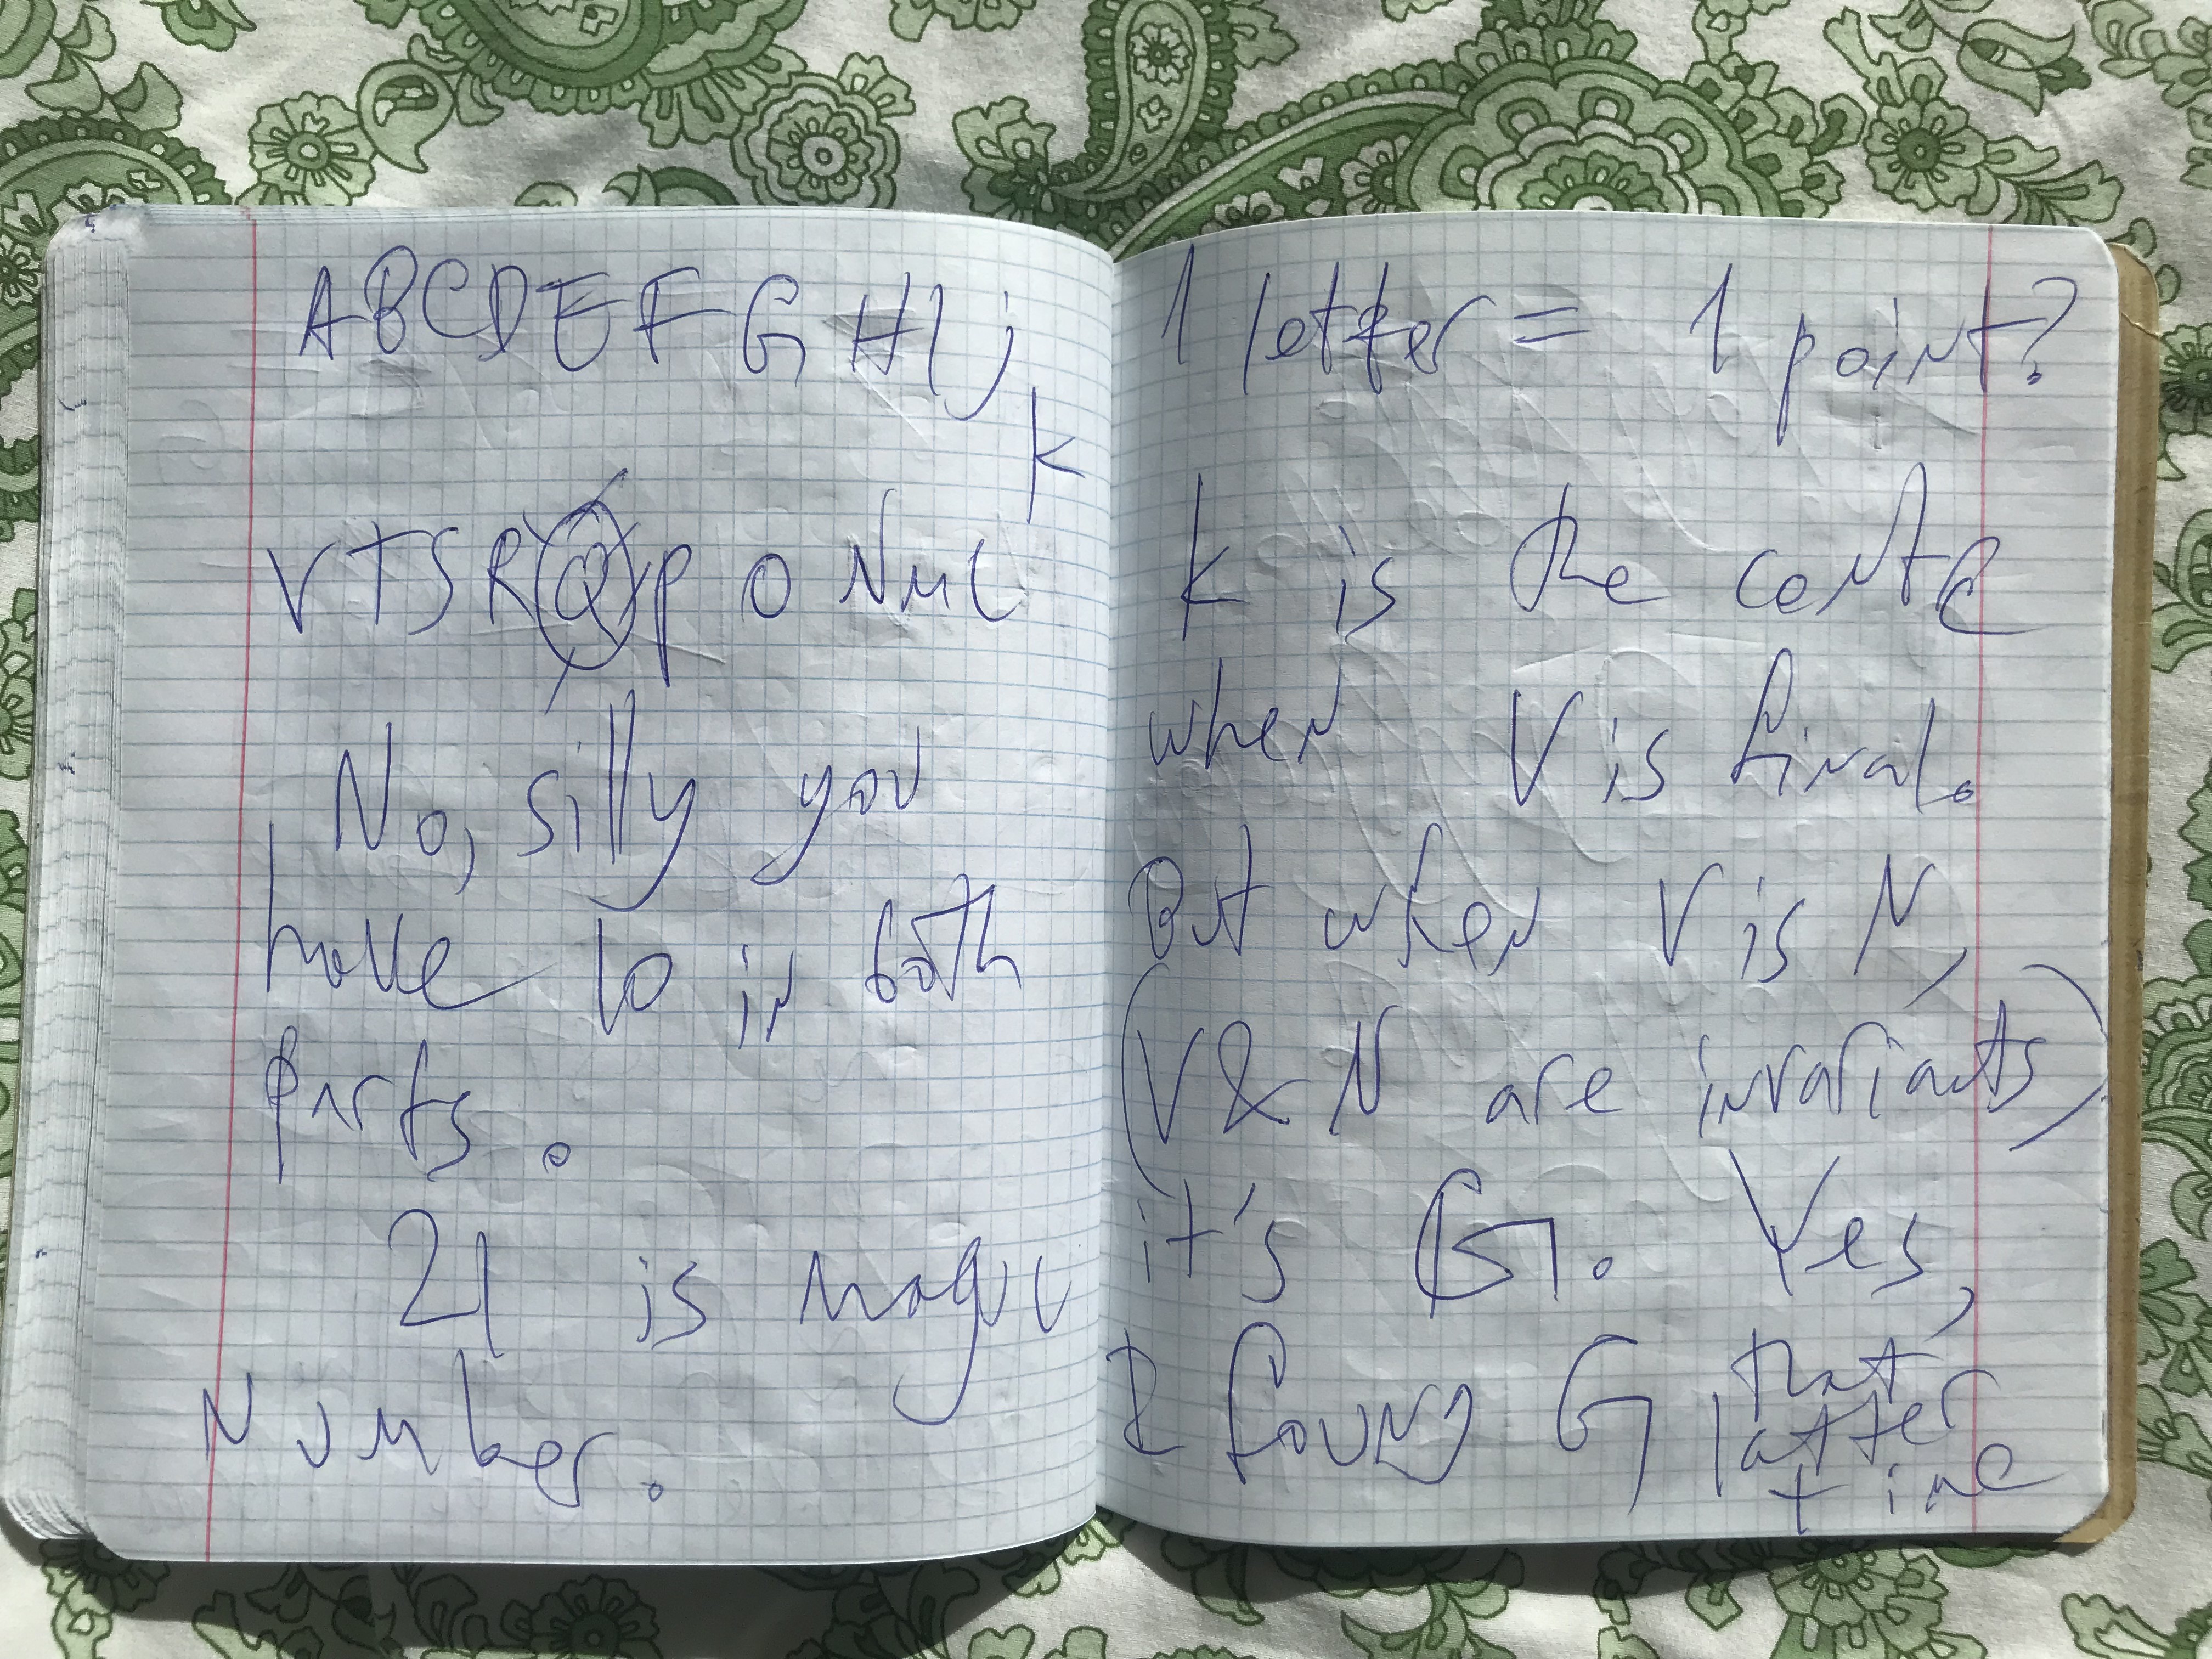 ABCDEFGHij
K
VTSRQPONML
No, silly you
have 10 in both
parts.
21 is magic
Number.
1 letter = 1 point?
K is the center
when V is final.
But when V is N,
(V & N are invariants)
it's G. Yes,
I found G that
latter
time